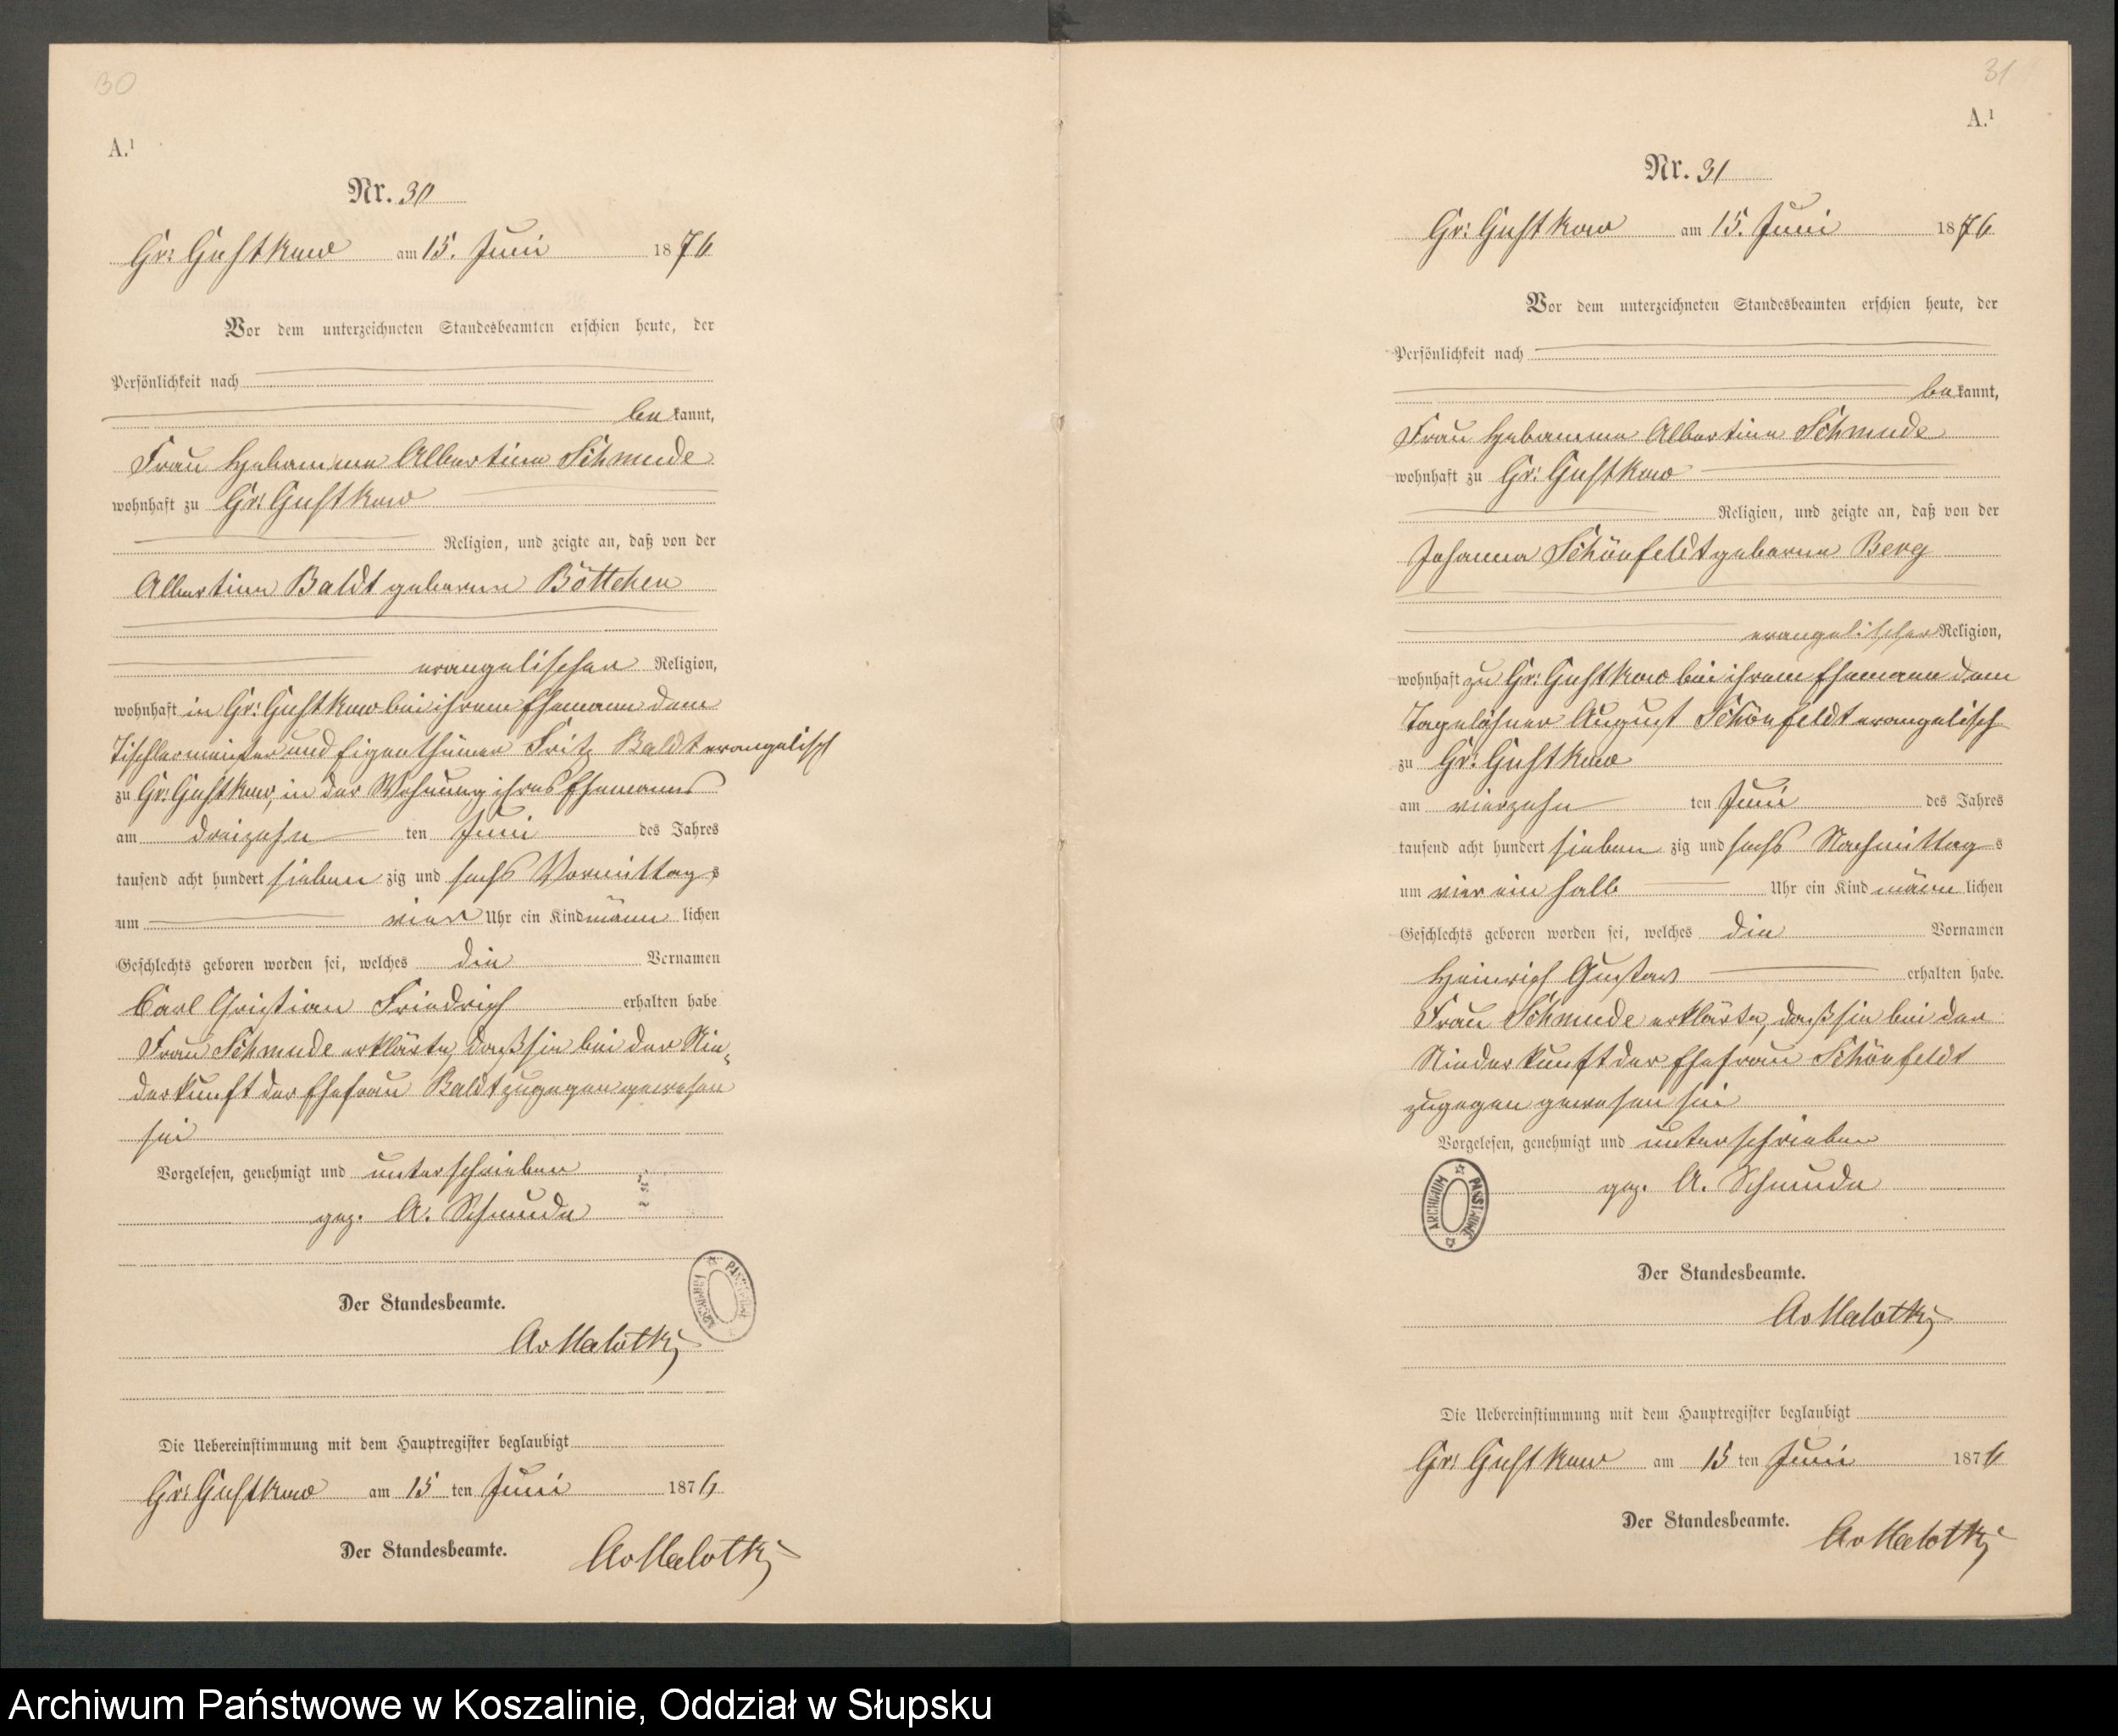 30
A.¹
Nr. 30
Gr: Gustkow am 15. Juni 1876
Vor dem unterzeichneten Standesbeamten erschien heute, der
Persönlichkeit nach
bekannt,
Frau Hebamme Albertine Schmude
wohnhaft zu Gr: Gustkow
Religion, und zeigte an, daß von der
Albertine Baldt geborene Böttcher
evangelischen Religion,
wohnhaft in Gr: Gustkow bei ihrem Ehemann dem
Tischlermeister und Eigenthümer Fritz Baldt evangelisch
zu Gr: Gustkow, in der Wohnung ihres Ehemanns
am dreizehn ten Juni des Jahres
tausend acht hundert sieben zig und sechs Vormittags
um vier Uhr ein Kind männlichen
Geschlechts geboren worden sei, welches die Vornamen
Carl Christian Friedrich erhalten habe
Frau Schmude erklärte, daß sie bei der Nie-
derkunft der Ehefrau Baldt zugegen gewesen
sei
Vorgelesen, genehmigt und unterschrieben
gez. A. Schmude
ARCHIWUM PAŃSTWOWE
Der Standesbeamte.
Av Malotki
Die Uebereinstimmung mit dem Hauptregister beglaubigt
Gr: Gustkow am 15 ten Juni 1876
Der Standesbeamte.
Av Malotki
31
A.¹
Nr. 31
Gr: Gustkow am 15. Juni 1876
Vor dem unterzeichneten Standesbeamten erschien heute, der
Persönlichkeit nach
bekannt,
Frau Hebamme Albertine Schmude
wohnhaft zu Gr: Gustkow
Religion, und zeigte an, daß von der
Johanna Schönfeldt geborene Berg
evangelischen Religion,
wohnhaft zu Gr: Gustkow bei ihrem Ehemann dem
Tagelöhner August Schönfeldt evangelisch
zu Gr: Gustkow
am vierzehn ten Juni des Jahres
tausend acht hundert sieben zig und sechs Nachmittags
um vier ein halb Uhr ein Kind männlichen
Geschlechts geboren worden sei, welches die Vornamen
Heinrich Gustav erhalten habe.
Frau Schmude erklärte, daß sie bei der
Niederkunft der Ehefrau Schönfeldt
zugegen gewesen sei
Vorgelesen, genehmigt und unterschrieben
gez. A. Schmude
ARCHIWUM PAŃSTWOWE
Der Standesbeamte.
Av Malotki
Die Uebereinstimmung mit dem Hauptregister beglaubigt
Gr: Gustkow am 15 ten Juni 1876
Der Standesbeamte.
Av Malotki
Archiwum Państwowe w Koszalinie, Oddział w Słupsku